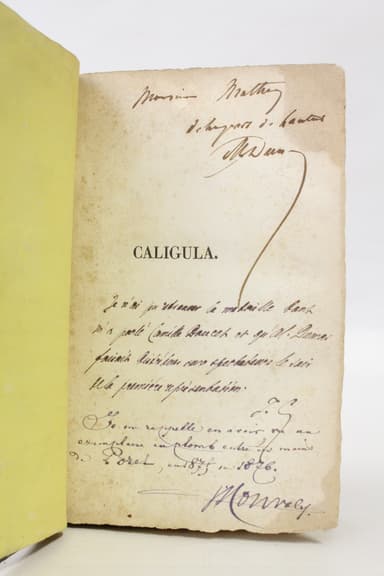 Monsieur
de la part de l'auteur
CALIGULA.
Je n'ai pu retrouver la médaille dont
m'a parlé Camille Doucet et qu'Al. Dumas
faisait distribuer aux spectateurs le soir
de la première représentation.
Je me rappelle en avoir vu un
exemplaire en plomb entre les mains
de Porel, en 1875 ou 1876.